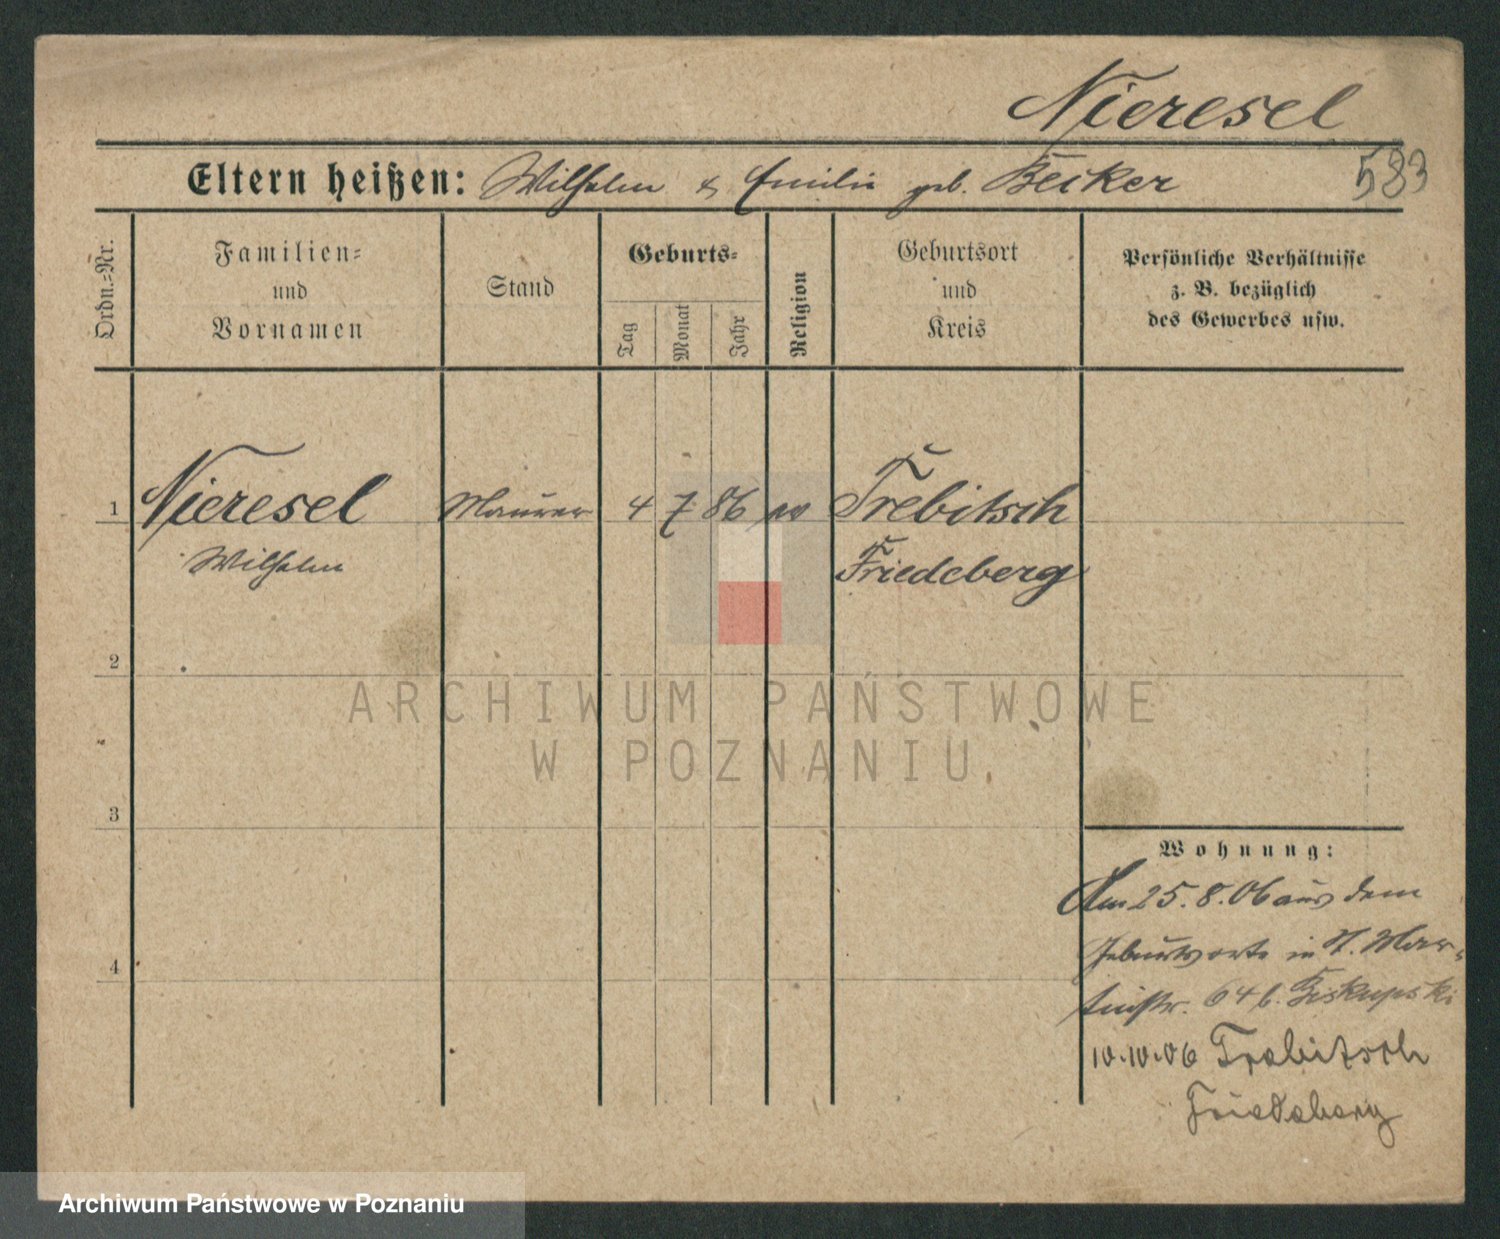 Nieresel
583
Eltern heißen: Wilhelm & Emilie geb. Becker
Ordn.-Nr.
Familien-
und
Vornamen
Stand
Geburts-
Tag
Monat
Jahr
Religion
Geburtsort
und
Kreis
Persönliche Verhältnisse
z. B. bezüglich
des Gewerbes usw.
1 Nieresel Maurer 4 7 86 ev Trebitsch
Wilhelm Friedeberg
2
ARCHIWUM PAŃSTWOWE
W POZNANIU
3
Wohnung:
Am 25.8.06 aus dem
4
Geburtsorte in St. Mar-
tinstr. 64 b. Biskupski
10.10.06 Trebitsch
Friedeberg
Archiwum Państwowe w Poznaniu